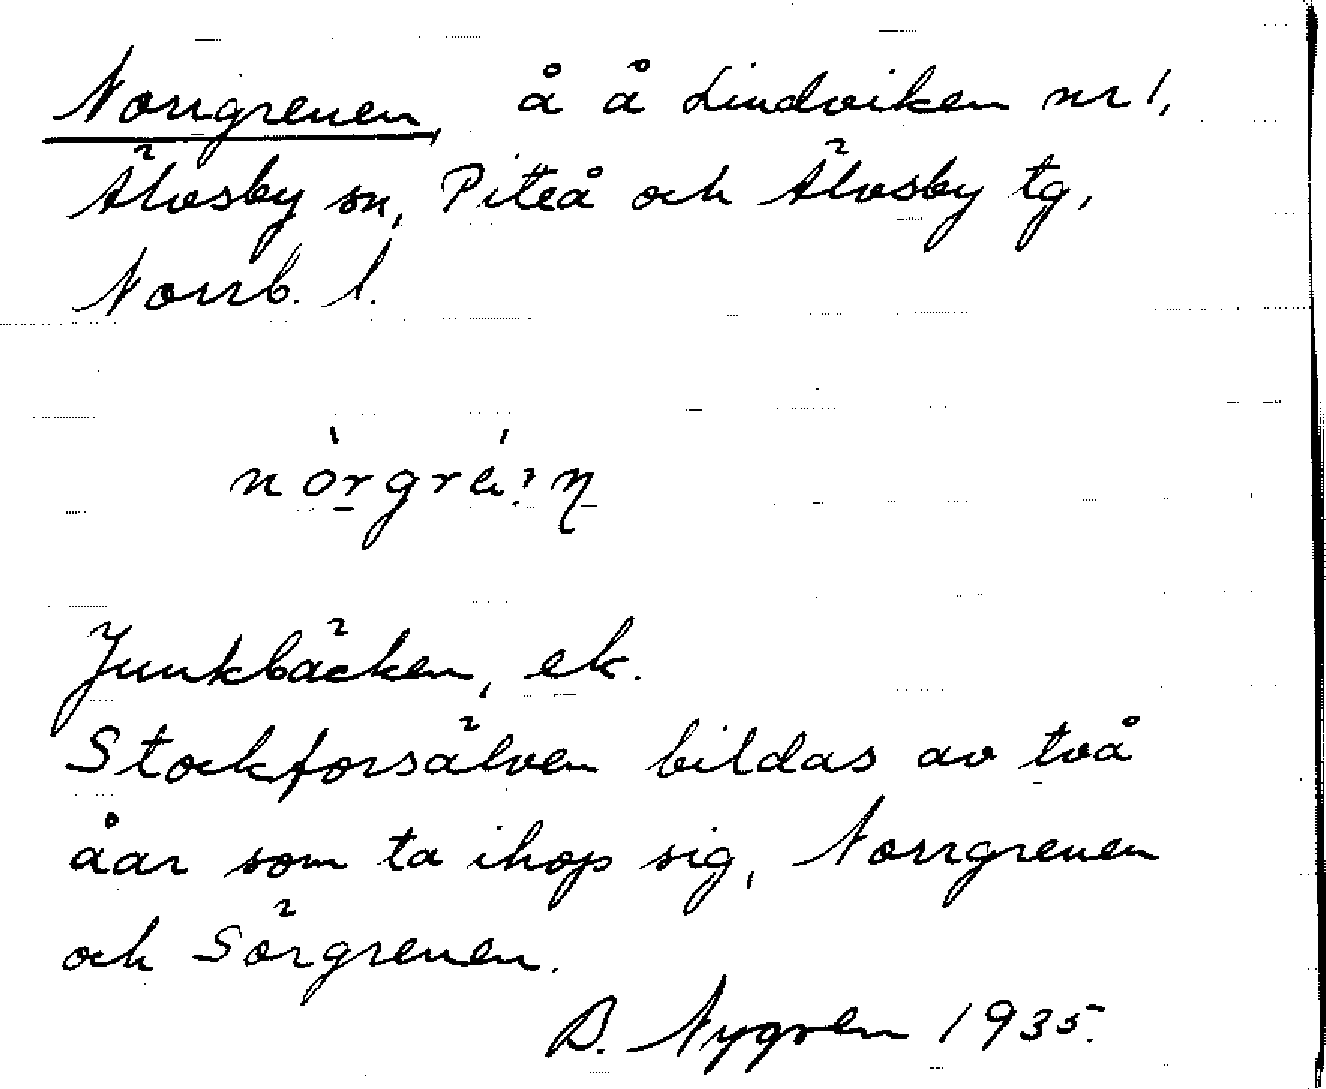 Norrgrenen, å å Lindviken nr 1,
Älvsby sn, Piteå och Älvsby tg,
Norrb. l.
Junkbäcken, ek.
Stockforsälven bildas av två
åar som ta ihop sig, Norrgrenen
och Sörgrenen.
B. Nygren 1935.